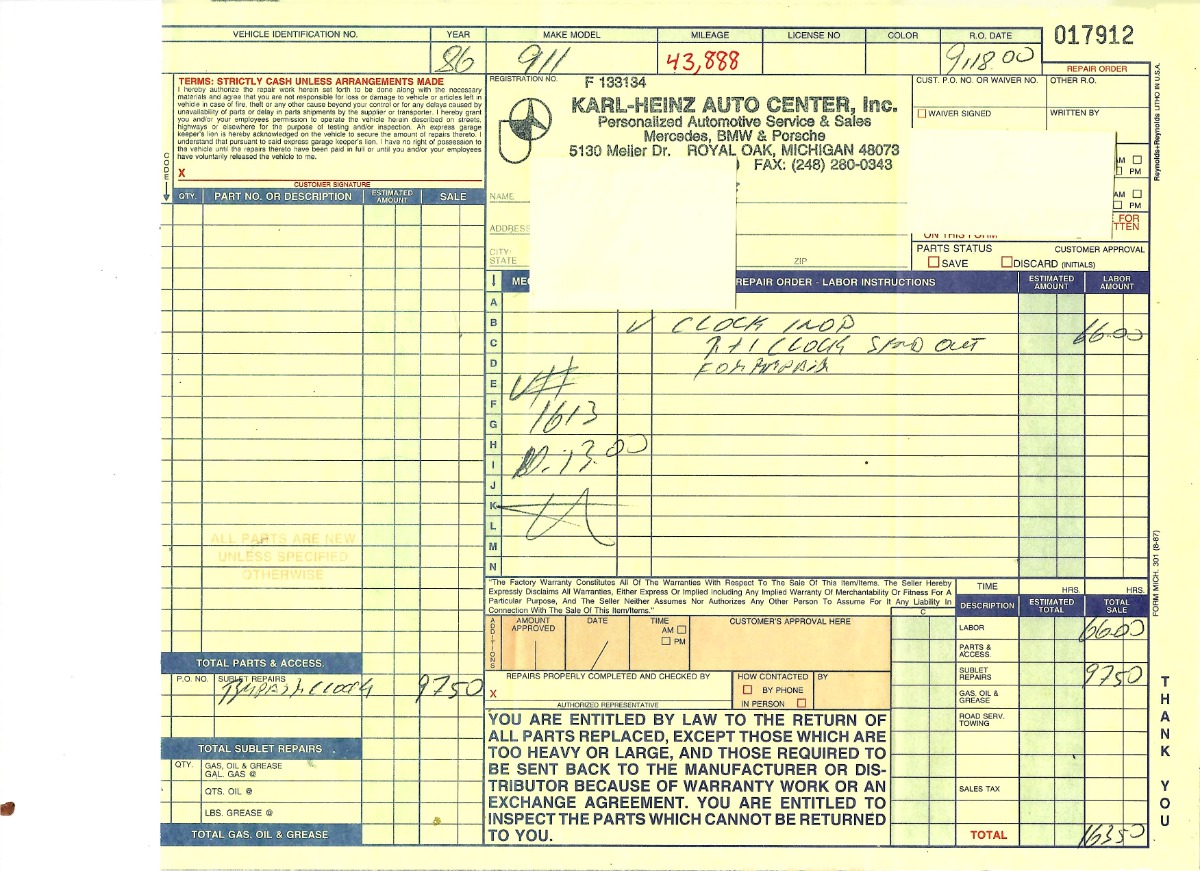 VEHICLE IDENTIFICATION NO. YEAR MAKE MODEL MILEAGE LICENSE NO COLOR R.O. DATE 017912
86 911 43,888 9,18 00
REPAIR ORDER
TERMS: STRICTLY CASH UNLESS ARRANGEMENTS MADE
I hereby authorize the repair work herein set forth to be done along with the necessary
materials and agree that you are not responsible for loss or damage to vehicle or articles left in
vehicle in case of fire, theft or any other cause beyond your control or for any delays caused by
unavailability of parts or delay in parts shipments by the supplier or transporter. I hereby grant
you and/or your employees permission to operate the vehicle herein described on streets,
highways or elsewhere for the purpose of testing and/or inspection. An express garage
keeper's lien is hereby acknowledged on the vehicle to secure the amount of repairs thereto. I
understand that pursuant to said express garage keeper's lien. I have no right of possession
to the vehicle until the repairs thereto have been paid in full or until you and/or your employees
have voluntarily released the vehicle to me.
X
CUSTOMER SIGNATURE
CODE
REGISTRATION NO. F 133134
KARL-HEINZ AUTO CENTER, Inc.
Personalized Automotive Service & Sales
Mercedes, BMW & Porsche
5130 Meijer Dr. ROYAL OAK, MICHIGAN 48073
) FAX: (248) 280-0343
NAME
ADDRESS
CITY/
STATE
ZIP
CUST. P.O. NO. OR WAIVER NO. OTHER R.O.
WAIVER SIGNED WRITTEN BY
AM
PM
AM
PM
FOR
TTEN
ON THIS FORM
PARTS STATUS CUSTOMER APPROVAL
SAVE DISCARD (INITIALS)
Reynolds+Reynolds LITHO IN U.S.A.
QTY. PART NO. OR DESCRIPTION ESTIMATED AMOUNT SALE
MEC REPAIR ORDER - LABOR INSTRUCTIONS ESTIMATED AMOUNT LABOR AMOUNT
A
B ✓ CLOCK INOP 66.00
C R+I CLOCK SEND OUT
D FOR REPAIR
E V#
F 1613
G
H 10.13.00
I
J
K
L
M
N
ALL PARTS ARE NEW
UNLESS SPECIFIED
OTHERWISE
"The Factory Warranty Constitutes All Of The Warranties With Respect To The Sale Of This Item/Items. The Seller Hereby
Expressly Disclaims All Warranties, Either Express Or Implied Including Any Implied Warranty Of Merchantability Or Fitness For A
Particular Purpose, And The Seller Neither Assumes Nor Authorizes Any Other Person To Assume For It Any Liability In
Connection With The Sale Of This Item/Items."
C
ADDITIONS
AMOUNT APPROVED DATE TIME AM PM CUSTOMER'S APPROVAL HERE
REPAIRS PROPERLY COMPLETED AND CHECKED BY
X
AUTHORIZED REPRESENTATIVE
HOW CONTACTED BY
BY PHONE
IN PERSON
YOU ARE ENTITLED BY LAW TO THE RETURN OF
ALL PARTS REPLACED, EXCEPT THOSE WHICH ARE
TOO HEAVY OR LARGE, AND THOSE REQUIRED TO
BE SENT BACK TO THE MANUFACTURER OR DIS-
TRIBUTOR BECAUSE OF WARRANTY WORK OR AN
EXCHANGE AGREEMENT. YOU ARE ENTITLED TO
INSPECT THE PARTS WHICH CANNOT BE RETURNED
TO YOU.
TOTAL PARTS & ACCESS.
P.O. NO. SUBLET REPAIRS
CLOCK 9750
TOTAL SUBLET REPAIRS
QTY. GAS, OIL & GREASE
GAL. GAS @
QTS. OIL @
LBS. GREASE @
TOTAL GAS. OIL & GREASE
TIME HRS. HRS.
DESCRIPTION ESTIMATED TOTAL TOTAL SALE
LABOR 6600
PARTS & ACCESS.
SUBLET REPAIRS 9750
GAS, OIL & GREASE
ROAD SERV. TOWING
SALES TAX
TOTAL 16350
FORM MICH. 301 (8-87)
THANK YOU